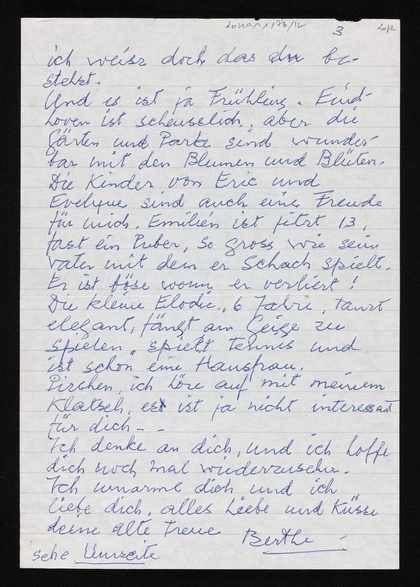 3
ich weiss doch das du be-
stehst.
Und es ist ja Frühling. Eind-
hoven ist scheusslich, aber die
Gärten und Parke sind wunder-
bar mit den Blumen und Blüten.
Die Kinder von Eric und
Evelyne sind auch eine Freude
für mich. Emilien ist jetzt 13,
fast ein Puber, so gross wie sein
vater mit dem er Schach spielt.
Er ist böse wenn er verliert!
Die kleine Elodie, 6 Jahre, tanzt
elegant, fängt an Geige zu
spielen, spielt tennis und
ist schon eine Hausfrau.
ich höre auf mit meinem
Klatsch, es ist ja nicht interessant
für dich - -
Ich denke an dich, und ich hoffe
dich noch mal wiederzusehn.
Ich umarme dich und ich
liebe dich, alles Liebe und Küsse
deine alte Treue Berthe
sehe Umseite